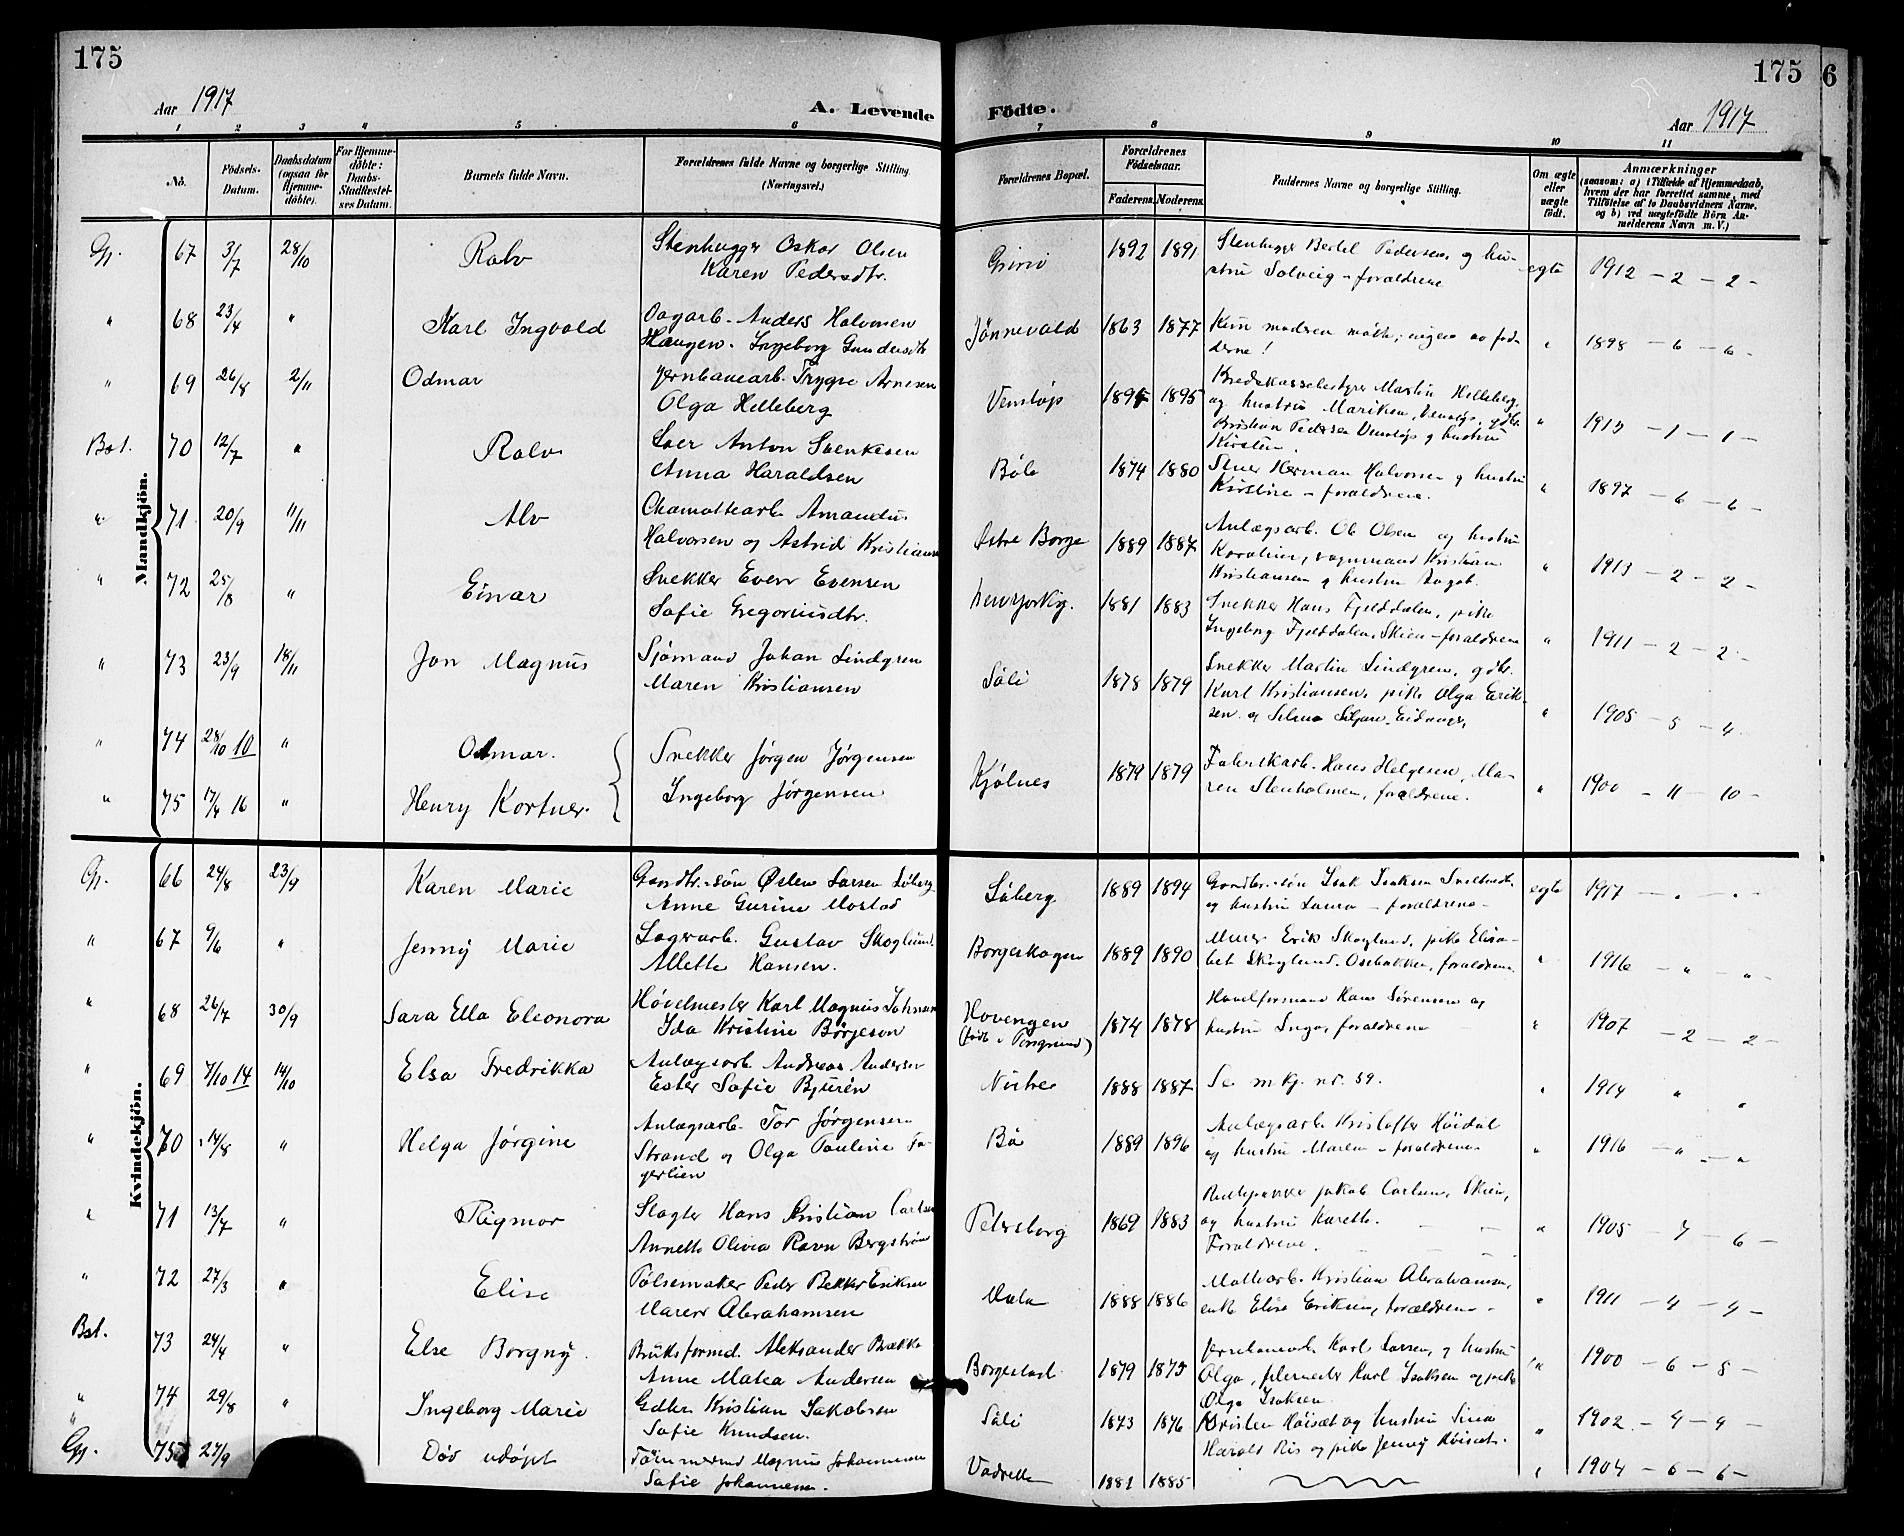 175
175
6
Aar 1917
A. Levende
Födte.
Aar 1917
1 2 3 4 5 6 7 8 9 10 11
No.
Födsels-
Datum.
Daabsdatum
(ogsaa for
Hjemme-
döbte).
For Hjemme-
döbte:
Daabs-
Stadfæstel-
ses Datum.
Barnets fulde Navn.
Forældrenes fulde Navne og borgerlige Stilling.
(Næringsvei.)
Forældrenes Bopæl.
Forældrenes
Födselsaar.
Faderens. Moderens.
Faddernes Navne og borgerlige Stilling.
Om ægte
eller
uægte
födt.
Anmærkninger
(saasom: a) i Tilfælde af Hjemmedaab,
hvem der har forrettet samme, med
Tilföielse af to Daabsvidners Navne,
og b) ved uægtefödte Börn An-
melderens Navn m. V.)
Mandkjön.
Gj. 67 3/7 28/10 Ralv
Stenhugger Oskar Olsen
Karen Pedersdtr.
1892 1891
Stenhugger Bertel Pedersen og hu-
stru Solveig - forældrene
egte 1912 - 2 - 2 -
" 68 23/4 " Karl Ingvald
Dagarb. Anders Halvorsen
Haugen. Ingeborg Gundersdtr
Jønnevald 1863 1877
Kun modren møtte; ingen av fad-
derne!
" 1898 - 6 - 6 -
" 69 26/8 2/11 Odmar
Jernbanearb. Trygve Arnesen
Olga Helleberg
Venstøp 1894 1895
Martin Helleberg
og hustru Mariken, Venstøp, gdbr.
Kristian Pedersen Venstøp og hustru
Kirsten.
" 1915 - 1 - 1 -
Bst. 70 12/7 " Ralv
Anton Svenkesen
Anna Haraldsen
Bøle 1874 1880
Herman Halvorsen og hustru
Kirstine - forældrene.
" 1897 - 6 - 6 -
" 71 20/9 11/11 Alv
Chamottearb. Amandus
Halvorsen og Astrid Kristiansen
Østre Borge 1889 1887
Anlægsarb. Ole Olsen og hustru
Karoline, vognmand Kristian
Kristiansen og hustru Aagot.
" 1913 - 2 - 2 -
" 72 25/8 " Einar
Snekker Even Evensen
Sofie Gregoriusdtr.
1881 1883
Snekker Hans Fjelddalen, pike
Ingeborg Fjelddalen, Skien - forældrene
" 1911 - 2 - 2 -
" 73 23/9 18/11 Jon Magnus
Sjømand Johan Lindgren
Maren Kristiansen
Søli 1878 1879
Snekker Martin Lindgren, gdbr.
Karl Kristiansen, pike Olga Erik-
sen og Selma Siljan, Eidanger,
" 1905 - 5 - 4 -
" 74 28/10 10 " Odmar.
" 75 17/4 16 " Henry Kortner.
Snekker Jørgen Jørgensen
Ingeborg Jørgensen
Kjølnes 1879 1879
Fabrikarb. Hans Helgesen, Ma-
ren Stenholmen, forældrene.
" 1900 - 11 - 10 -
Kvindekjön.
Gj. 66 24/8 23/9 Karen Marie
Gaardbr.søn Østen Larsen Løberg
Anne Gurine Mostad
Løberg 1889 1894
Gaardbr.søn Isak Isaksen
og hustru Laura - forældrene -
egte 1917 - " - " -
" 67 9/6 " Jenny Marie
Lagerarb. Gustav Skoglund.
Allette Hansen.
Borgeskogen 1889 1890
Murer Erik Skoglund, pike Elisa-
bet Skoglund. Osebakken, forældrene.
" 1916 - " - " -
" 68 26/7 30/9 Sara Ella Eleonora
Høvelmester Karl Magnus Johnsen
Ida Kristine Børjeson
Hovengen
(født i Porsgrund)
1874 1878
Høvelformand Hans Sørensen og
hustru Inga, forældrene
" 1907 - 2 - 2 -
" 69 7/10 14 14/10 Elsa Fredrikka
Anlægsarb. Andreas Andersen
Ester Sofie Bjurén
1888 1887
Se m.kj. nr. 59.
" 1914 " "
" 70 14/8 " Helga Jørgine
Anlægsarb. Tor Jørgensen
Strand og Olga Pauline Fa-
gerlien
Bø 1889 1896
Anlægsarb. Kristoffer Høidal
og hustru Maren - forældrene
" 1916 - " - "
" 71 13/7 " Rigmor
Slagter Hans Kristian Carlsen
Annette Olivia Ravn Bergstrøm
Petersborg 1869 1883
Jakob Carlsen, Skien,
og hustru Karette.
Forældrene.
" 1905 - 7 - 6 -
" 72 27/3 " Elise
Pølsemaker Peder Bekker Eriksen
Maren Abrahamsen
Mæla 1888 1886
Kristian Abrahamsen,
enke Elise Eriksen, forældrene -
" 1911 - 4 - 4 -
Bst. 73 24/4 " Else Borgny.
Bruksformd. Aleksander Brække
Anne Matea Andersen
Borgestad. 1879 1875
Karl Larsen og hustru
Olga, Karl Isaksen og pike
Olga Isaksen.
" 1900 - 6 - 5 -
" 74 29/8 " Ingeborg Marie
Gdbr. Kristian Jakobsen
Sofie Knudsen.
Søli 1873 1876
Kristen Høisæt og hustru Lina
Harald Ris og pike Jenny Høisæt.
" 1902 - 4 - 4 -
Gj. 75 27/9 Død udøpt
Tømmermd Magnus Johannesen
Sofie Johannesen.
1881 1885
" 1904 - 6 - 6 -